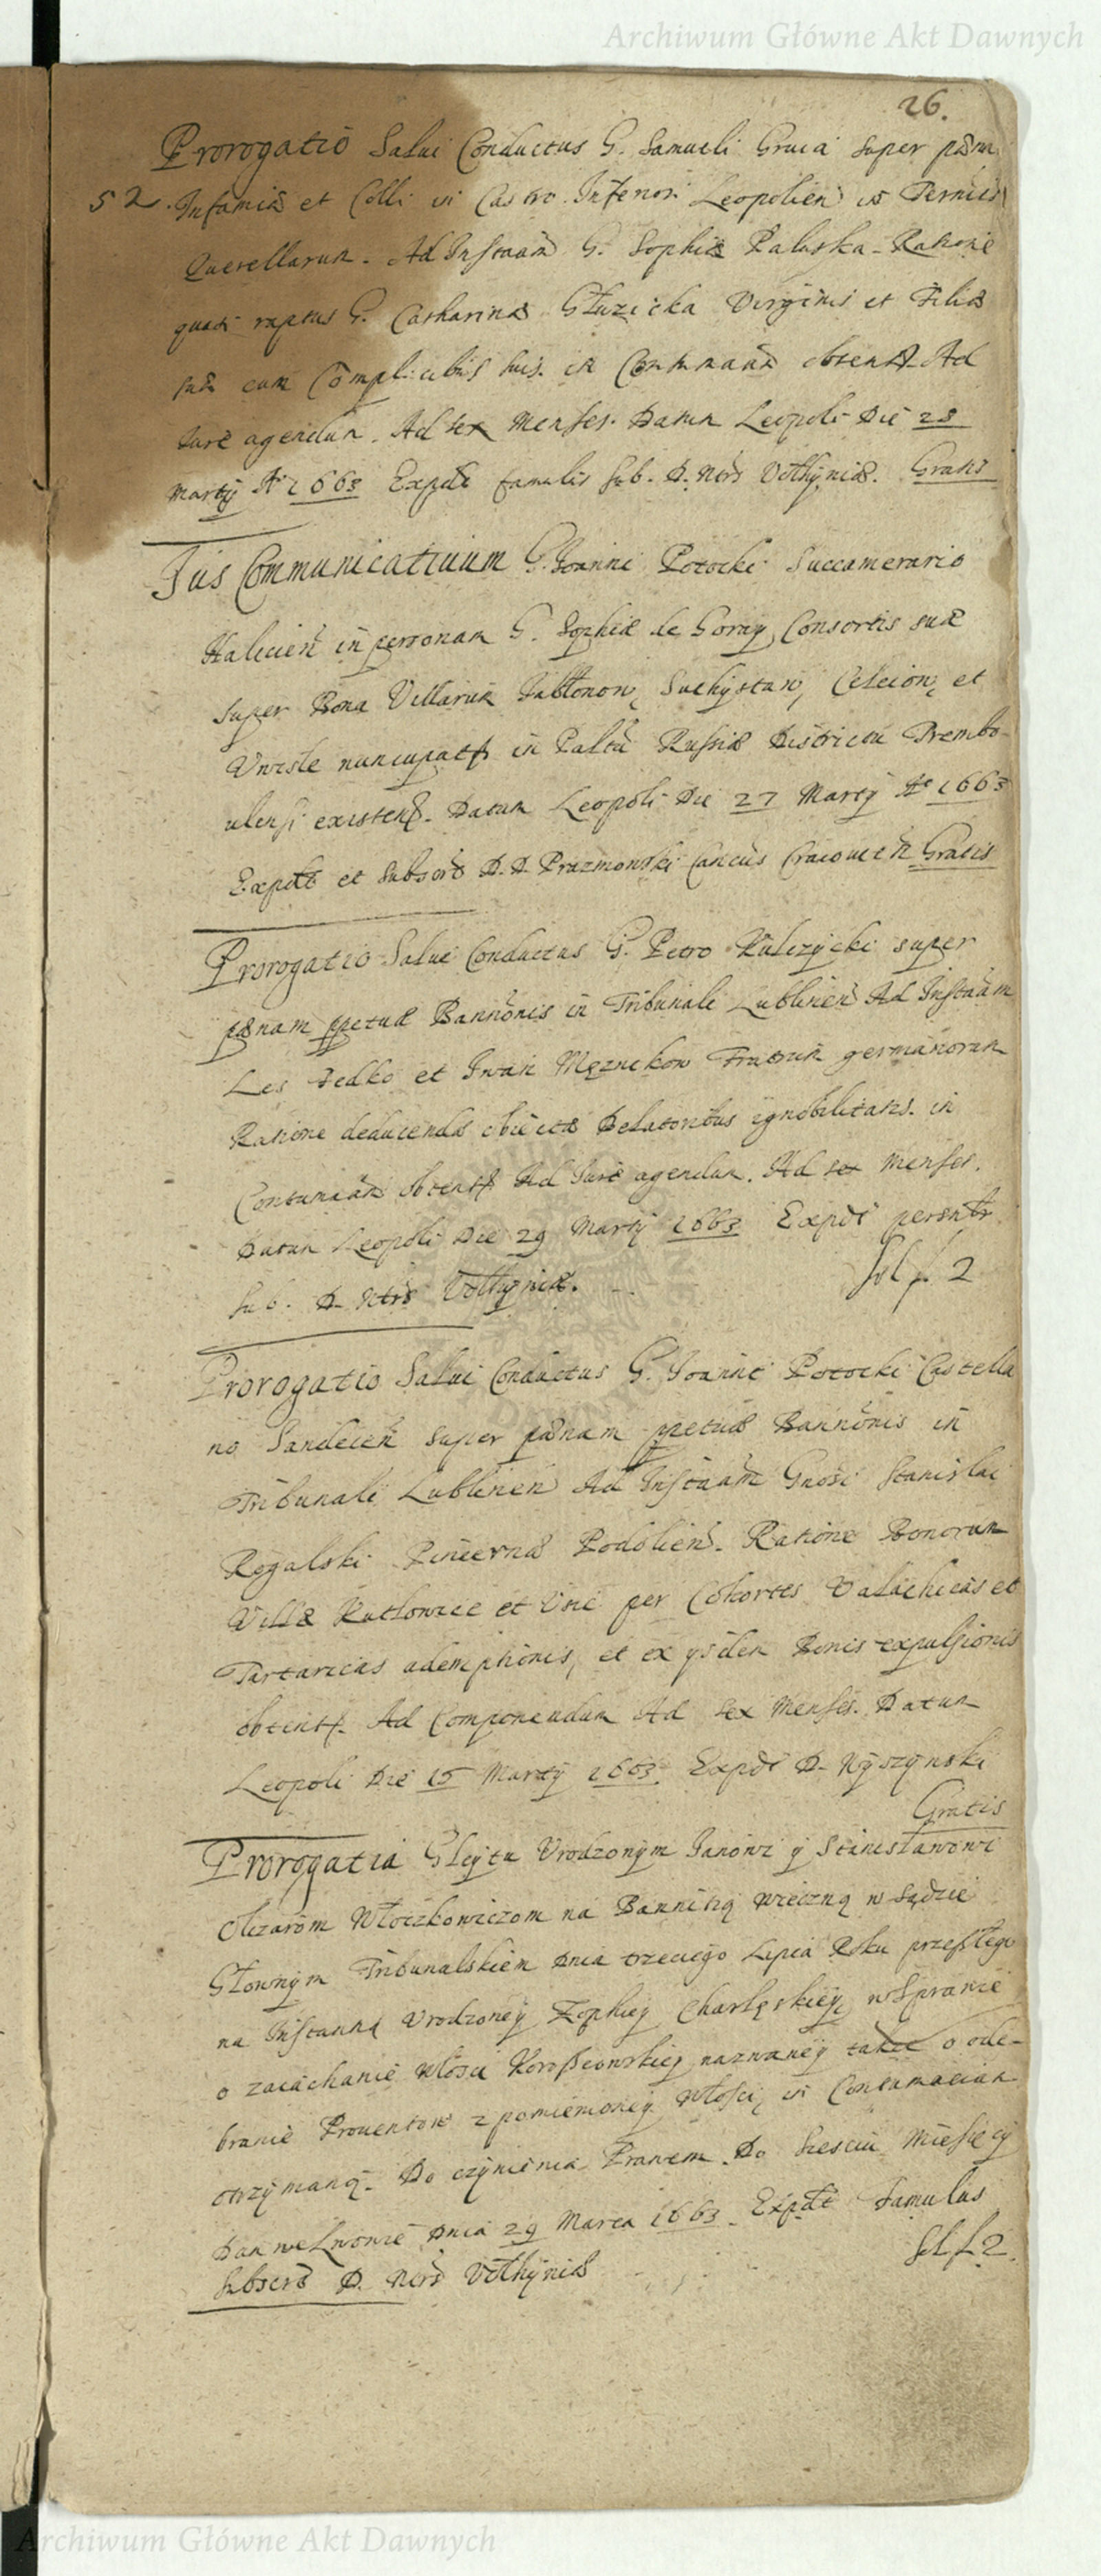 Archiwum Główne Akt Dawnych
26.
Prorogatio Salui Conductus G. Samueli Gruca super pænam
52. Infamiæ et Colli in Castro Inferiori Leopolien̄ in Terminis
Querellarum. Ad Instaām G. Sophiæ Kaluska Ratione
quasi raptus G. Catharinæ Gluzicka Virginis et Filiæ
suæ cum Complicibus suis in Contumaām obtent. Ad
Iure agendum. Ad sex Menses. Datum Leopoli Die 28
Martÿ Aō 1663 Expdt famulis sub. D. Ntrs Volhyniæ. Gratis
Jus Communicatiuum G. Joanni Potocki Succamerario
Halicien̄ in personam G. Sophiæ de Goray Consortis suæ
super Bona Villarum Jabłonow, Suchystaw, Celeiow, et
Uwisle nuncupat in Paltu Russiæ Districtu Trembo-
ulensi existen. Datum Leopoli Die 27 Martÿ Aō 1663
Expdt et Subscr D. D. Prazmowski Cancus Cracouien̄ Gratis
Prorogatio Salui Conductus G. Petro Kulczycki super
pænam ppetuæ Bannōnis in Tribunali Lublinen̄ Ad Instaām
Les Fedko et Iwan Męznikow Fratrum germanorum
Ratione deducendæ obiectæ Delatoribus ignobilitatis. in
Contumaciam obtent Ad Iure agendum. Ad sex Menses.
Datum Leopoli Die 29 Martÿ 1663 Expdt
sub. D. Ntrs Volhyniæ.
Sol f. 2
Prorogatio Salui Conductus G. Joanni Potocki Castella
no Sandecen̄ super pænam ppetuæ Bannōnis in
Tribunali Lublinen̄ Ad Instaām Gnosi Stanislai
Rogalski Pincernæ Podolien̄. Ratione Bonorum
Villæ Kutlowce et Usie per Cohortes Valachicas et
Tartaricas ademptionis, et ex ysdem Bonis expulsionis
obtent. Ad Componendum Ad sex Menses. Datum
Leopoli Die 15 Martÿ 1663. Expdt D. Nyszynski
Gratis
Prorogatia Gleytu Vrodzonym Janowi y Stanisławowi
Olizarom Wołczkowiczom na Bannitią wieczną w Sądzie
Głownym Tribunalskiem Dnia trzeciego Lipca Roku przeszłego
na Instantią Vrodzoney Zophiey Charlęskiey, w Sprawie
o zaiachanie Włosci Korosteowskiey nazwaney także o ode-
branie Prouentow z pomienioney Włosci, in Contumaciam
otrzymaną. Do czynienia Prawem. Do Szesciu Miesięcy
Dan we Lwowie Dnia 29 Marca 1663. Expdt Famulus
Subscrs D. Ntrs Volhyniæ
Sol f. 2.
Archiwum Główne Akt Dawnych